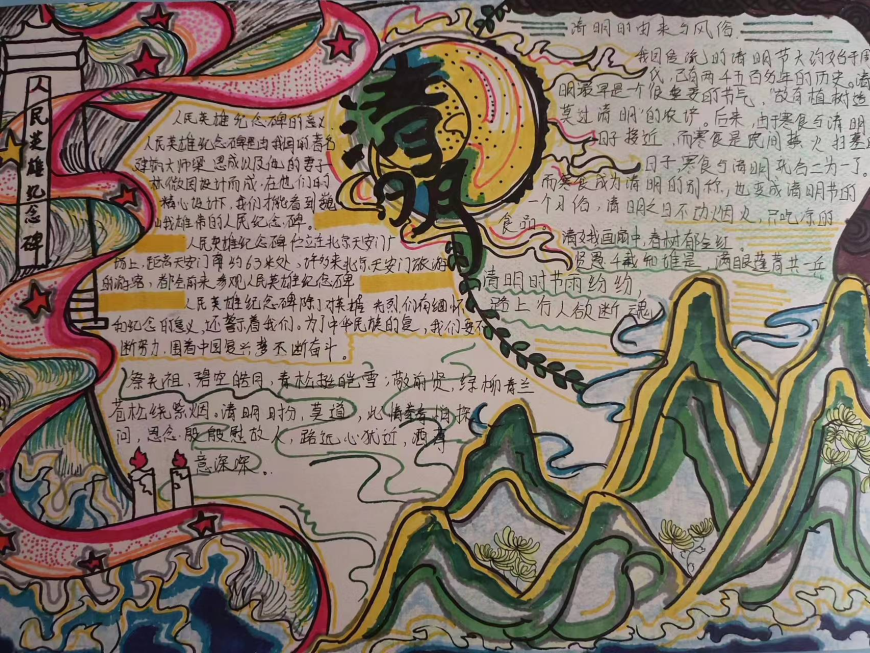 人民英雄纪念碑
清明
人民英雄纪念碑的意义
人民英雄纪念碑是由我国的著名
建筑大师梁思成以及他的妻子
林徽因设计而成,在他们的
精心设计下,我们才能看到
雄伟的人民纪念碑。
人民英雄纪念碑伫立在北京天安门广
场上,距离天安门南约63米处,许多来北京天安门旅游
的游客,都会前来参观人民英雄纪念碑
人民英雄纪念碑除了对英雄先烈们有缅怀
和纪念的意义,还警示着我们。为了中华民族的复,我们要不
断努力,围着中国复兴梦不断奋斗。
祭先祖,碧空皓月,青松挺皑雪;敬前贤,绿柳青兰
苍松绕紫烟。清明时扮,莫道,此情春怕探
问,思念殷殷慰故人,路远心犹近,酒薄
意深深。
清明的由来与风俗
我国传流的清明节大约始于周
代,已有两千五百多年的历史。清
明最早是一个很重要的节气,故有植树造
莫过清明"的农谚。后来,由于寒食与清明
日子接近,而寒食是民间禁火扫墓
日子,寒食与清明就合二为一了。
而寒食成为清明的别称,也变成清明节的
一个习俗,清明之日不动烟火,只吃凉的
食品。
清又我画雨中,春树郁金红。
思君千载知谁是,满眼蓬蒿共一丘
清明时节雨纷纷,
路上行人欲断魂